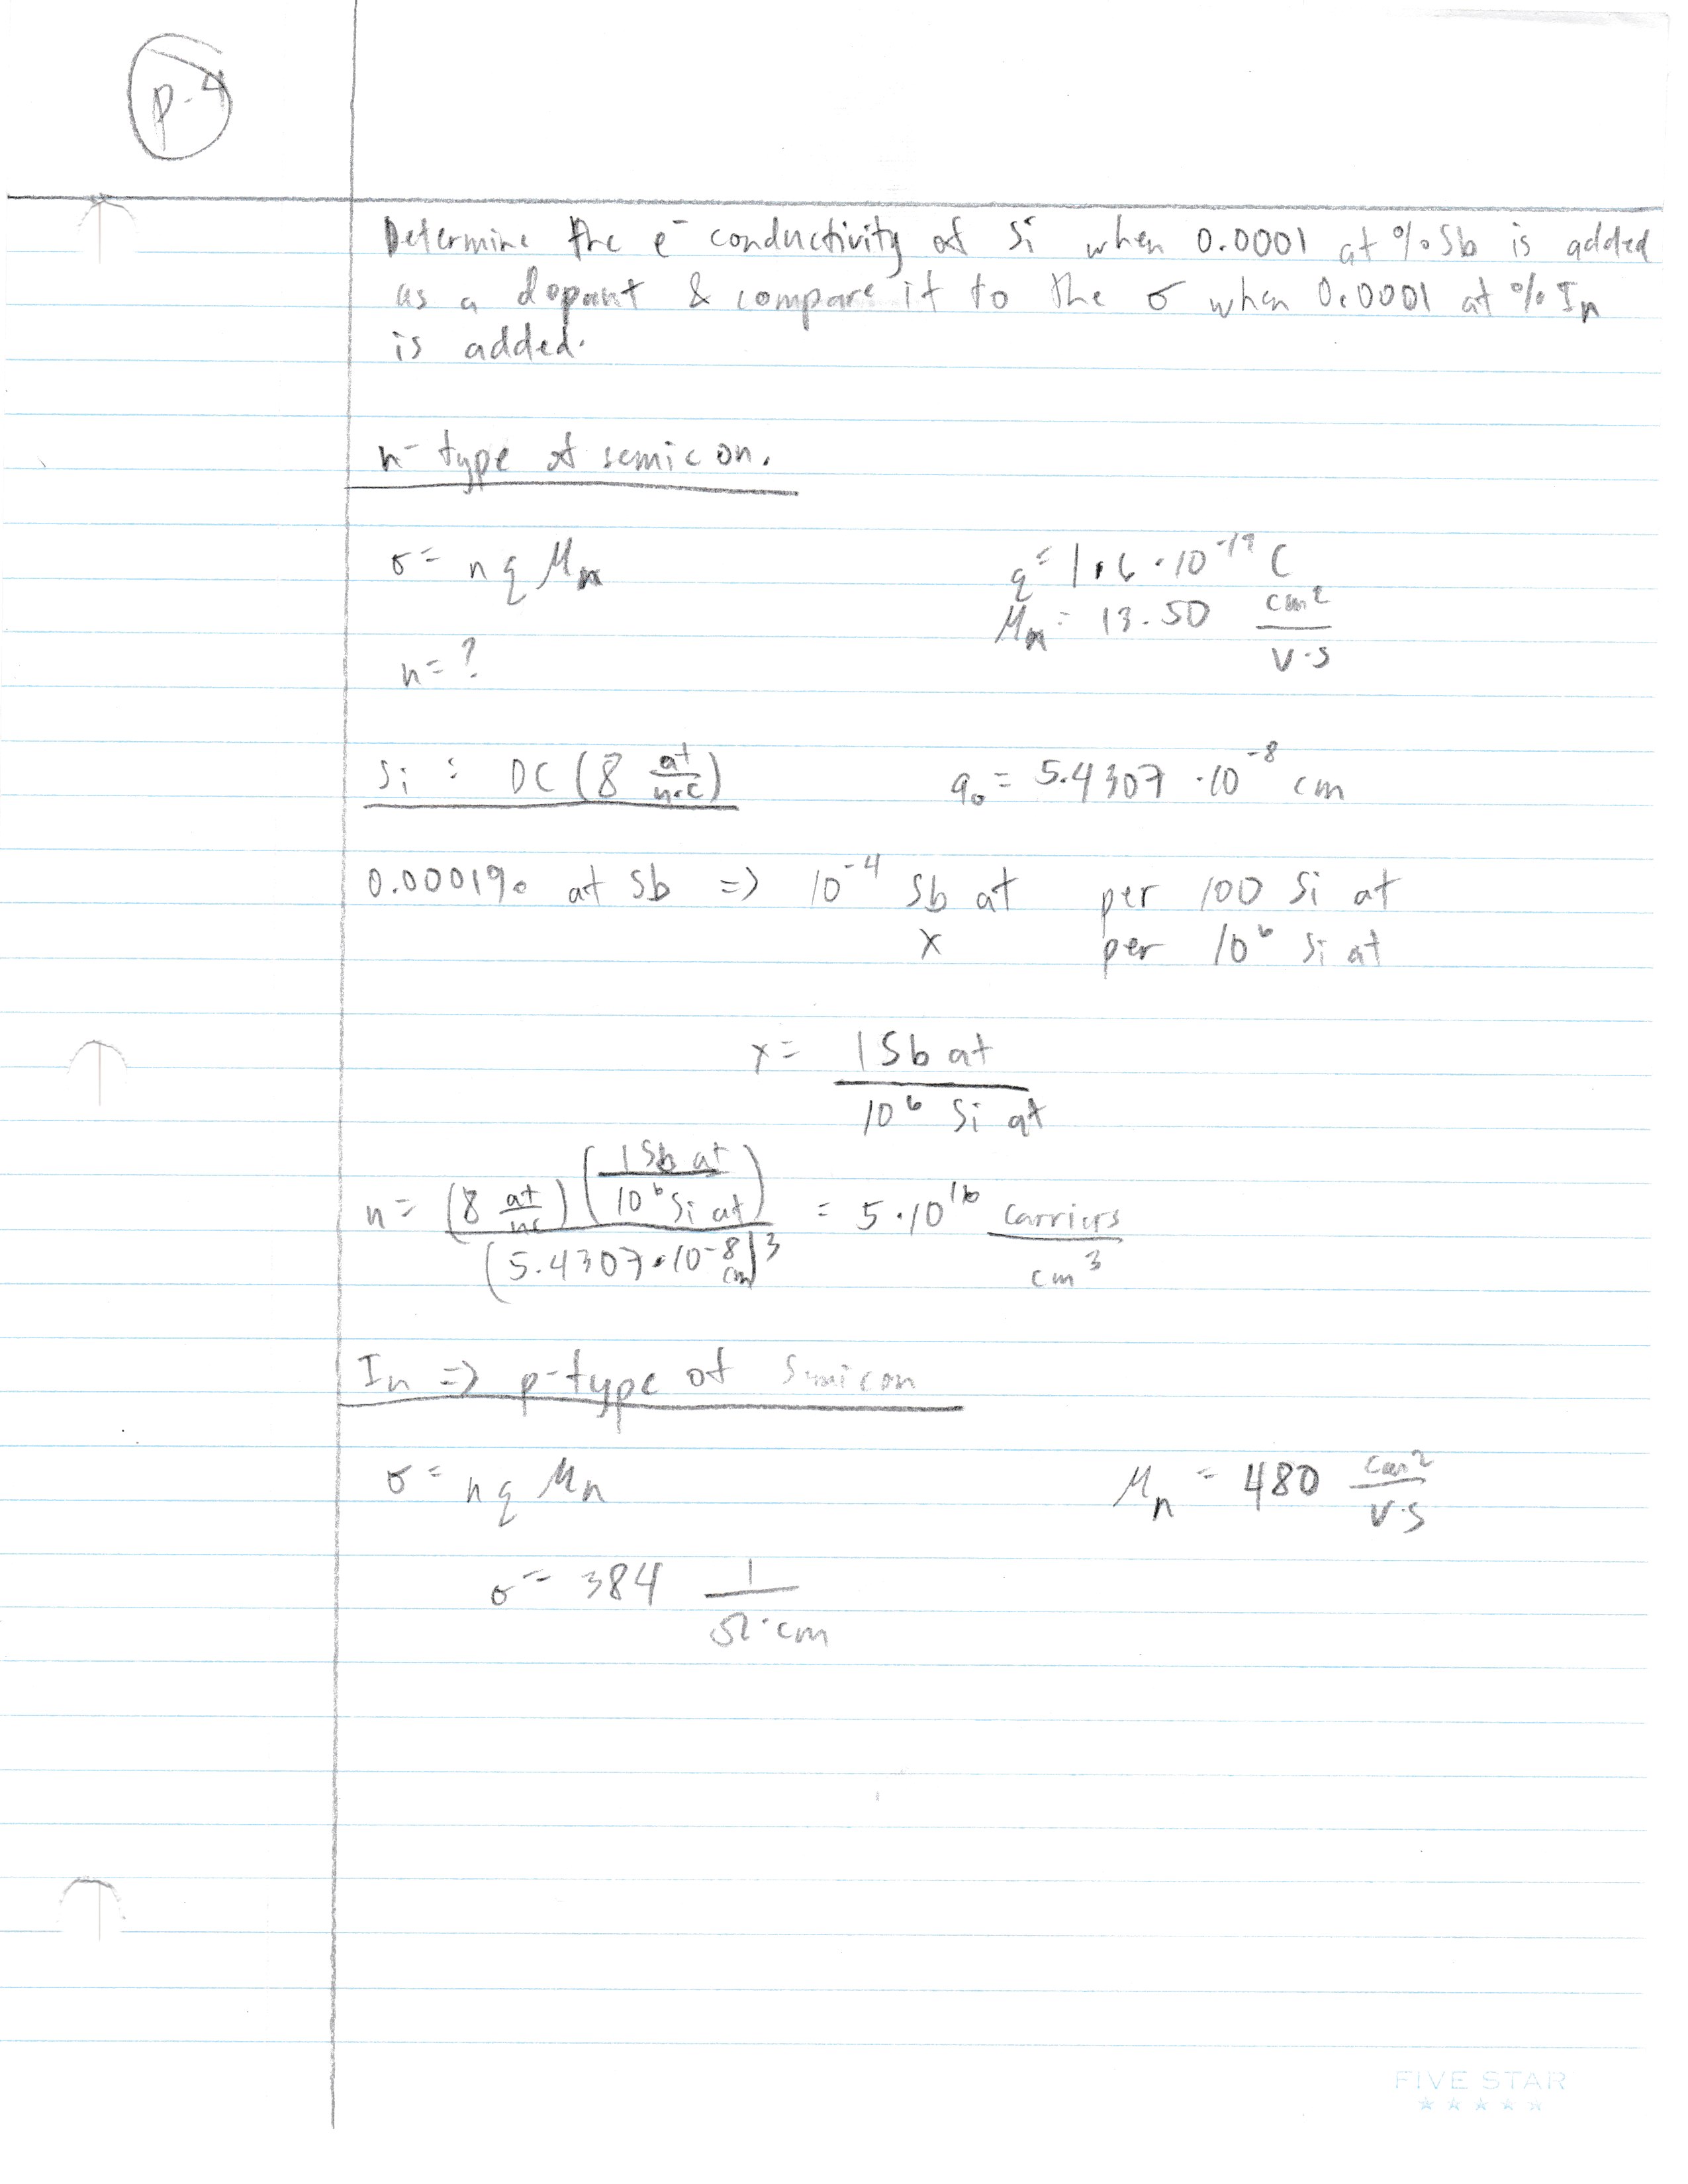 p-4
Determine the e⁻ conductivity of Si when 0.0001 at % Sb is added
as a dopant & compare it to the σ when 0.0001 at % In
is added.
n-type of semicon.
σ = n q μn
q = 1.6 · 10⁻¹⁹ C
μn = 13.50 cm²/V·s
n = ?
Si : DC (8 at/u.c)
a₀ = 5.4307 · 10⁻⁸ cm
0.0001% at Sb => 10⁻⁴ Sb at per 100 Si at
x per 10⁶ Si at
x = 1 Sb at / 10⁶ Si at
n = (8 at/uc) (1 Sb at / 10⁶ Si at) / (5.4307 · 10⁻⁸ cm)³ = 5 · 10¹⁶ carriers/cm³
In => p-type of Semicon
σ = n q μn
μn = 480 cm²/V·s
σ = 384 1/Ω·cm
FIVE STAR